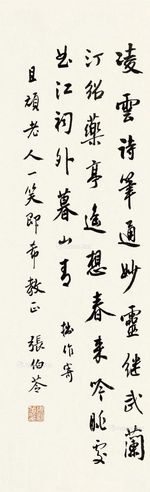 凌雲詩筆通妙靈繼武蘭
汀紹藥亭遙想春來吟眺處
曲江祠外暮山青 拙作寄
且頑老人一笑即希教正 張伯苓